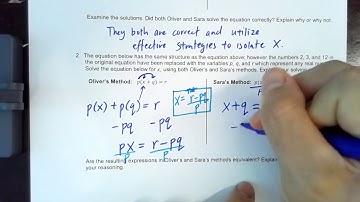 Examine the solutions. Did both Oliver and Sara solve the equation correctly? Explain why or why not.
They both are correct and utilize
effective strategies to isolate X.
2. The equation below has the same structure as the equation above; however the numbers 2, 3, and 12 in
the original equation have been replaced with the variables p, q, and r which represent any real
Solve the equation below for x, using both Oliver's and Sara's methods.
Oliver's Method: p(x + q) = r
Sara's Method:
p(x) + p(q) = r
x = r - pq
p
x + q =
- pq - pq
px = r - pq
p p
Are the resulting expressions in Oliver's and Sara's methods equivalent? Explain
your reasoning.